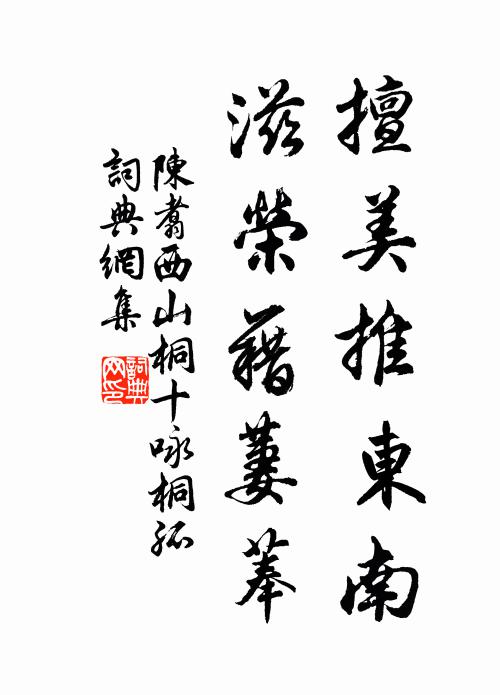 擅美推東南
滋榮藉萋菶
陳翥西山桐十咏桐孤
詞典網集
詞典網印